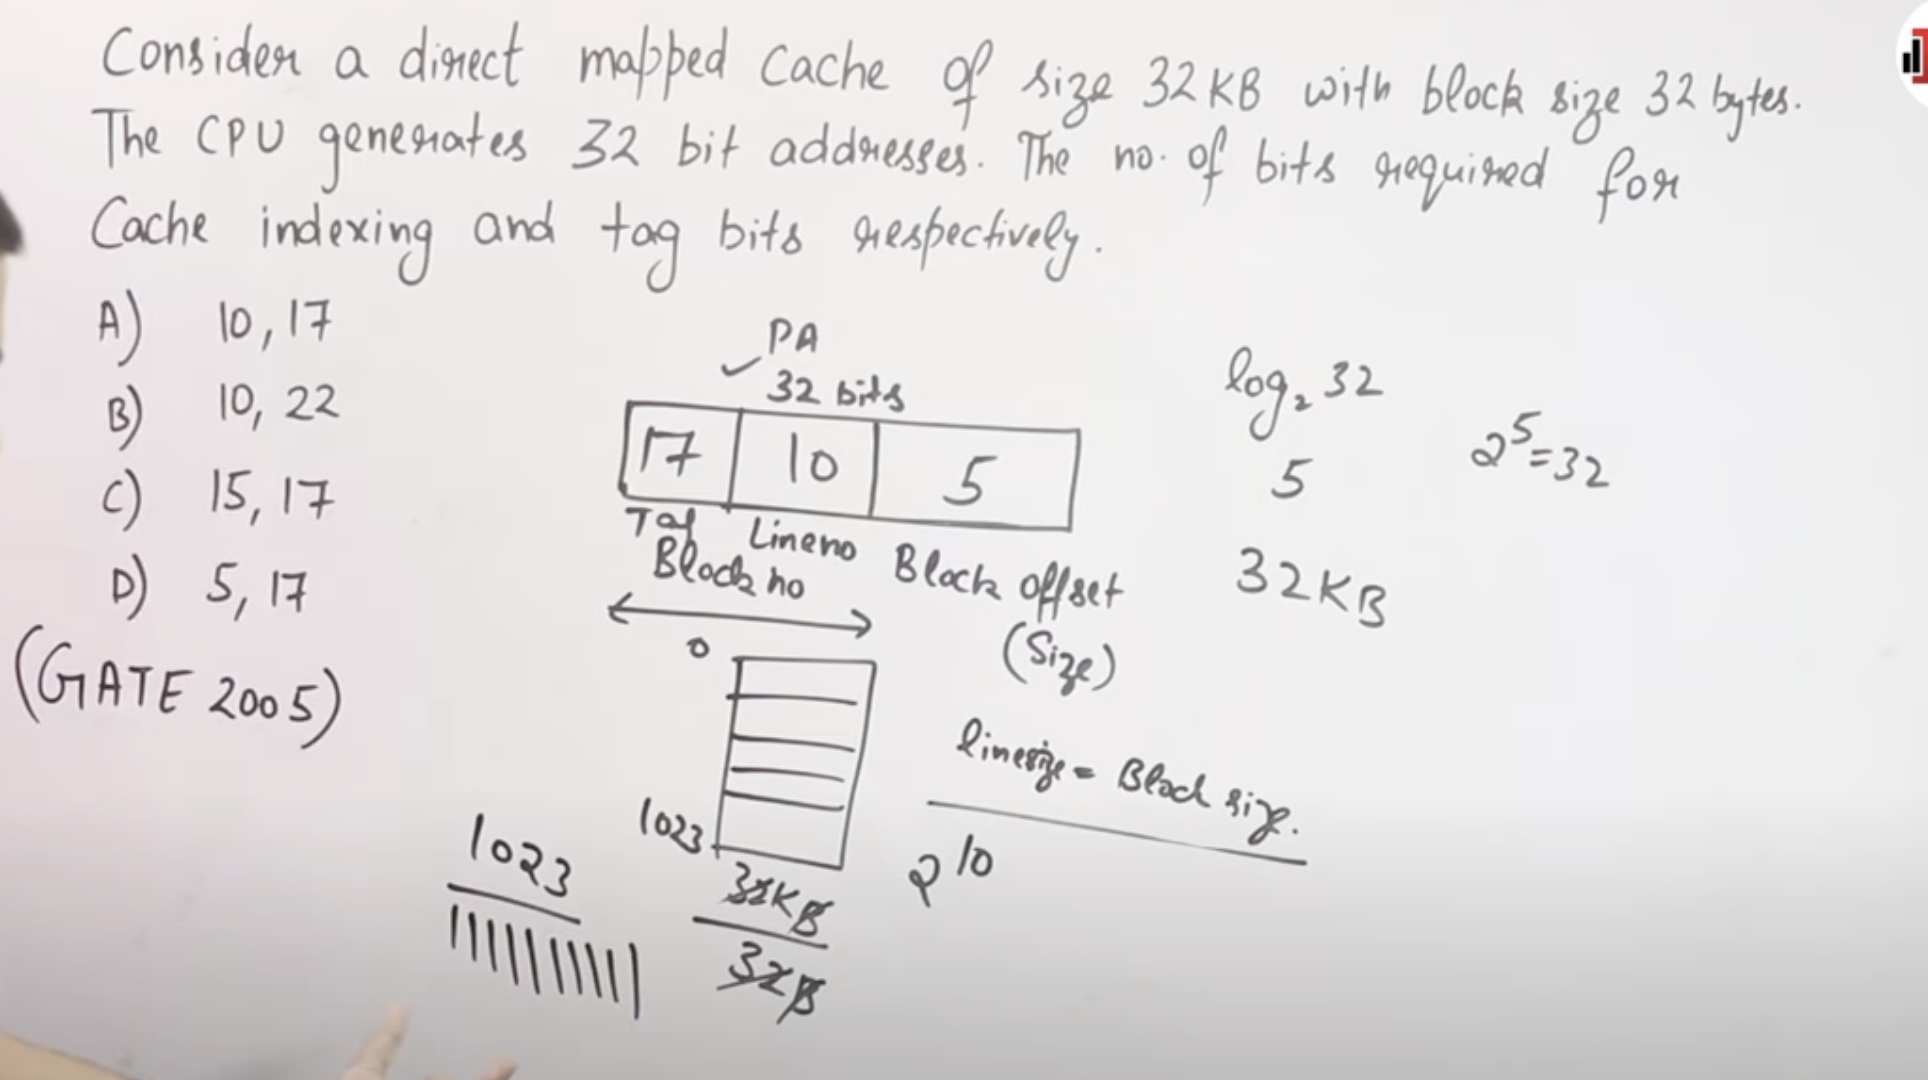 Consider a direct mapped Cache of size 32KB with block size 32 bytes.
The CPU generates 32 bit addresses. The no. of bits required for
Cache indexing and tag bits respectively.
A) 10, 17
B) 10, 22
C) 15, 17
D) 5, 17
(GATE 2005)
PA
✓ 32 bits
17 10 5
Tag Line no Block offset
Block no
(Size)
log₂ 32
5
2⁵=32
32KB
0
1023
32KB
32B
linesize = Block size.
2¹⁰
1023
1111111111